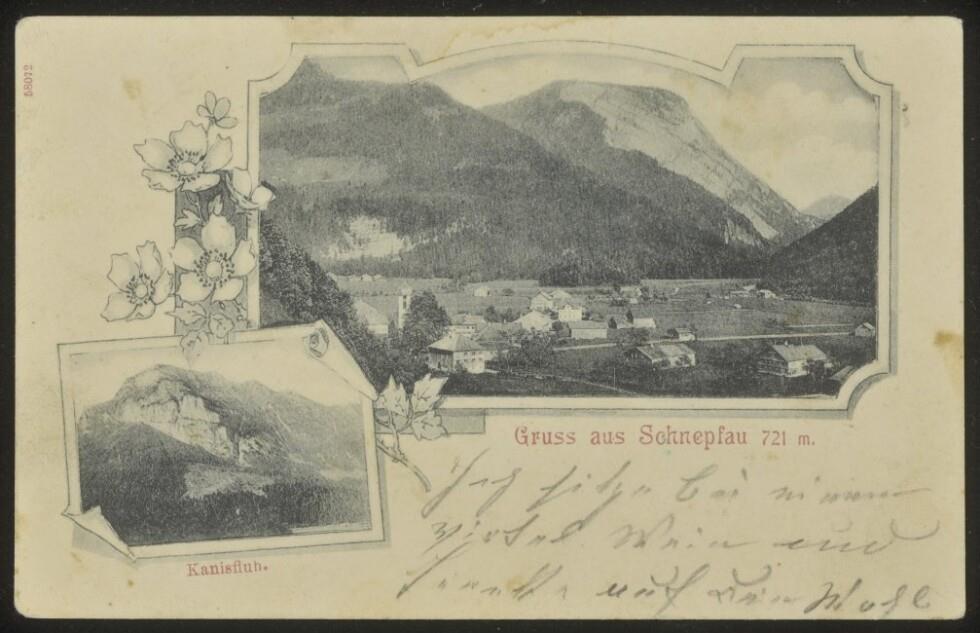 58072
Gruss aus Schnepfau 721 m.
Kanisfluh.
Ich sitze bei einem
Viertel Wein und
trinke auf Dein Wohl